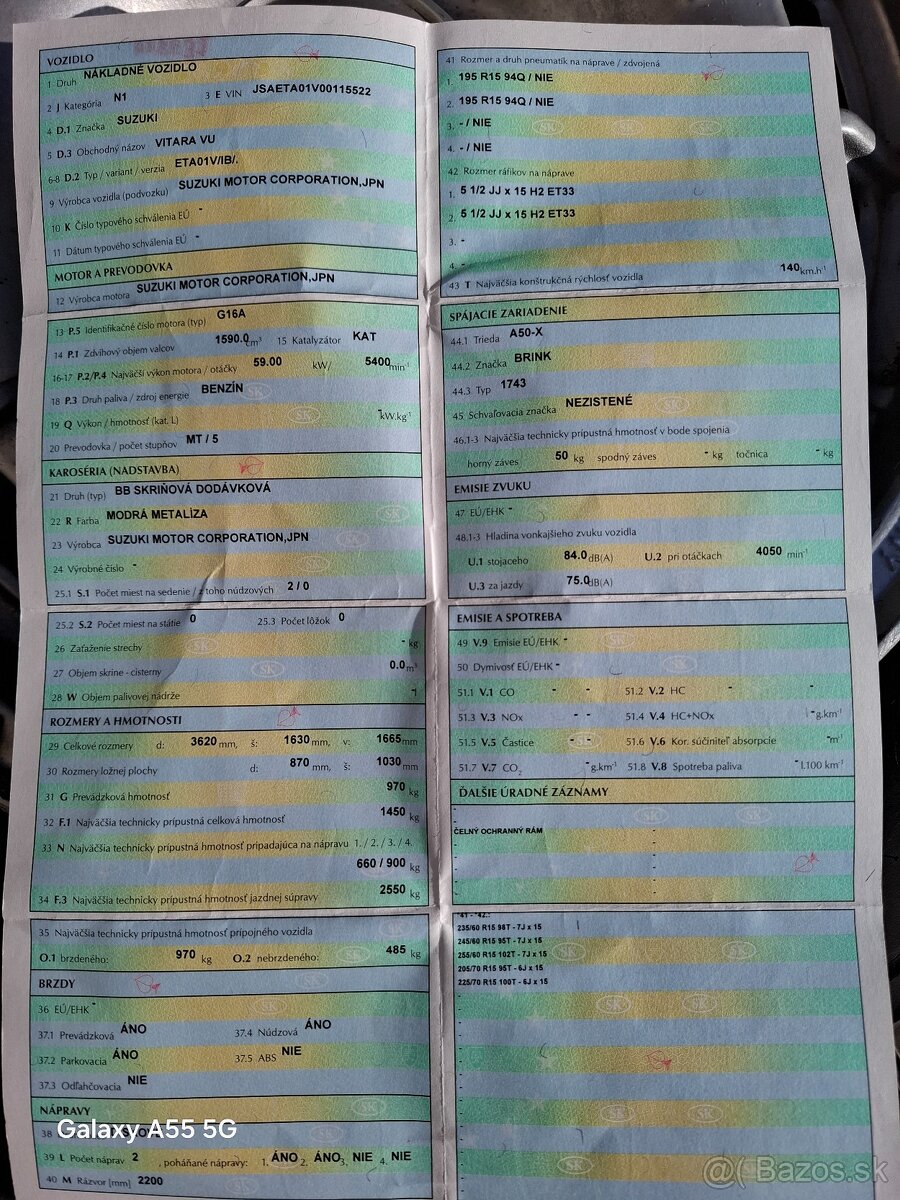 VOZIDLO
1 Druh NÁKLADNÉ VOZIDLO
2 J Kategória N1 3 E VIN JSAETA01V00115522
4 D.1 Značka SUZUKI
5 D.3 Obchodný názov VITARA VU
6-8 D.2 Typ / variant / verzia ETA01V/IB/.
9 Výrobca vozidla (podvozku) SUZUKI MOTOR CORPORATION,JPN
10 K Číslo typového schválenia EÚ -
11 Dátum typového schválenia EÚ -
MOTOR A PREVODOVKA
12 Výrobca motora SUZUKI MOTOR CORPORATION,JPN
13 P.5 Identifikačné číslo motora (typ) G16A
14 P.1 Zdvihový objem valcov 1590.0 cm³ 15 Katalyzátor KAT
16-17 P.2/P.4 Najväčší výkon motora / otáčky 59.00 kW/ 5400 min⁻¹
18 P.3 Druh paliva / zdroj energie BENZÍN
19 Q Výkon / hmotnosť (kat. L) - kW.kg⁻¹
20 Prevodovka / počet stupňov MT / 5
KAROSÉRIA (NADSTAVBA)
21 Druh (typ) BB SKRIŇOVÁ DODÁVKOVÁ
22 R Farba MODRÁ METALÍZA
23 Výrobca SUZUKI MOTOR CORPORATION,JPN
24 Výrobné číslo -
25.1 S.1 Počet miest na sedenie / z toho núdzových 2 / 0
25.2 S.2 Počet miest na státie 0 25.3 Počet lôžok 0
26 Zaťaženie strechy - kg
27 Objem skrine - cisterny 0.0 m³
28 W Objem palivovej nádrže - l
ROZMERY A HMOTNOSTI
29 Celkové rozmery d: 3620 mm, š: 1630 mm, v: 1665 mm
30 Rozmery ložnej plochy d: 870 mm, š: 1030 mm
31 G Prevádzková hmotnosť 970 kg
32 F.1 Najväčšia technicky prípustná celková hmotnosť 1450 kg
33 N Najväčšia technicky prípustná hmotnosť pripadajúca na nápravu 1. / 2. / 3. / 4.
660 / 900 kg
34 F.3 Najväčšia technicky prípustná hmotnosť jazdnej súpravy 2550 kg
35 Najväčšia technicky prípustná hmotnosť prípojného vozidla
O.1 brzdeného: 970 kg O.2 nebrzdeného: 485 kg
BRZDY
36 EÚ/EHK -
37.1 Prevádzková ÁNO 37.4 Núdzová ÁNO
37.2 Parkovacia ÁNO 37.5 ABS NIE
37.3 Odľahčovacia NIE
NÁPRAVY
38
39 L Počet náprav 2 , poháňané nápravy: 1. ÁNO 2. ÁNO 3. NIE 4. NIE
40 M Rázvor [mm] 2200
41 Rozmer a druh pneumatík na náprave / zdvojená
1. 195 R15 94Q / NIE
2. 195 R15 94Q / NIE
3. - / NIE
4. - / NIE
42 Rozmer ráfikov na náprave
1. 5 1/2 JJ x 15 H2 ET33
2. 5 1/2 JJ x 15 H2 ET33
3. -
4. -
43 T Najväčšia konštrukčná rýchlosť vozidla 140 km.h⁻¹
SPÁJACIE ZARIADENIE
44.1 Trieda A50-X
44.2 Značka BRINK
44.3 Typ 1743
45 Schvaľovacia značka NEZISTENÉ
46.1-3 Najväčšia technicky prípustná hmotnosť v bode spojenia
horný záves 50 kg spodný záves - kg točnica - kg
EMISIE ZVUKU
47 EÚ/EHK -
48.1-3 Hladina vonkajšieho zvuku vozidla
U.1 stojaceho 84.0 dB(A) U.2 pri otáčkach 4050 min⁻¹
U.3 za jazdy 75.0 dB(A)
EMISIE A SPOTREBA
49 V.9 Emisie EÚ/EHK -
50 Dymivosť EÚ/EHK -
51.1 V.1 CO - - 51.2 V.2 HC - -
51.3 V.3 NOx - - 51.4 V.4 HC+NOx - g.km⁻¹
51.5 V.5 Častice - - 51.6 V.6 Kor. súčiniteľ absorpcie - m⁻¹
51.7 V.7 CO₂ - g.km⁻¹ 51.8 V.8 Spotreba paliva - l.100 km⁻¹
ĎALŠIE ÚRADNÉ ZÁZNAMY
ČELNÝ OCHRANNÝ RÁM
*41 - *42.:
235/60 R15 98T - 7J x 15
245/60 R15 95T - 7J x 15
255/60 R15 102T - 7J x 15
205/70 R15 95T - 6J x 15
225/70 R15 100T - 6J x 15
Galaxy A55 5G
@( Bazos.sk